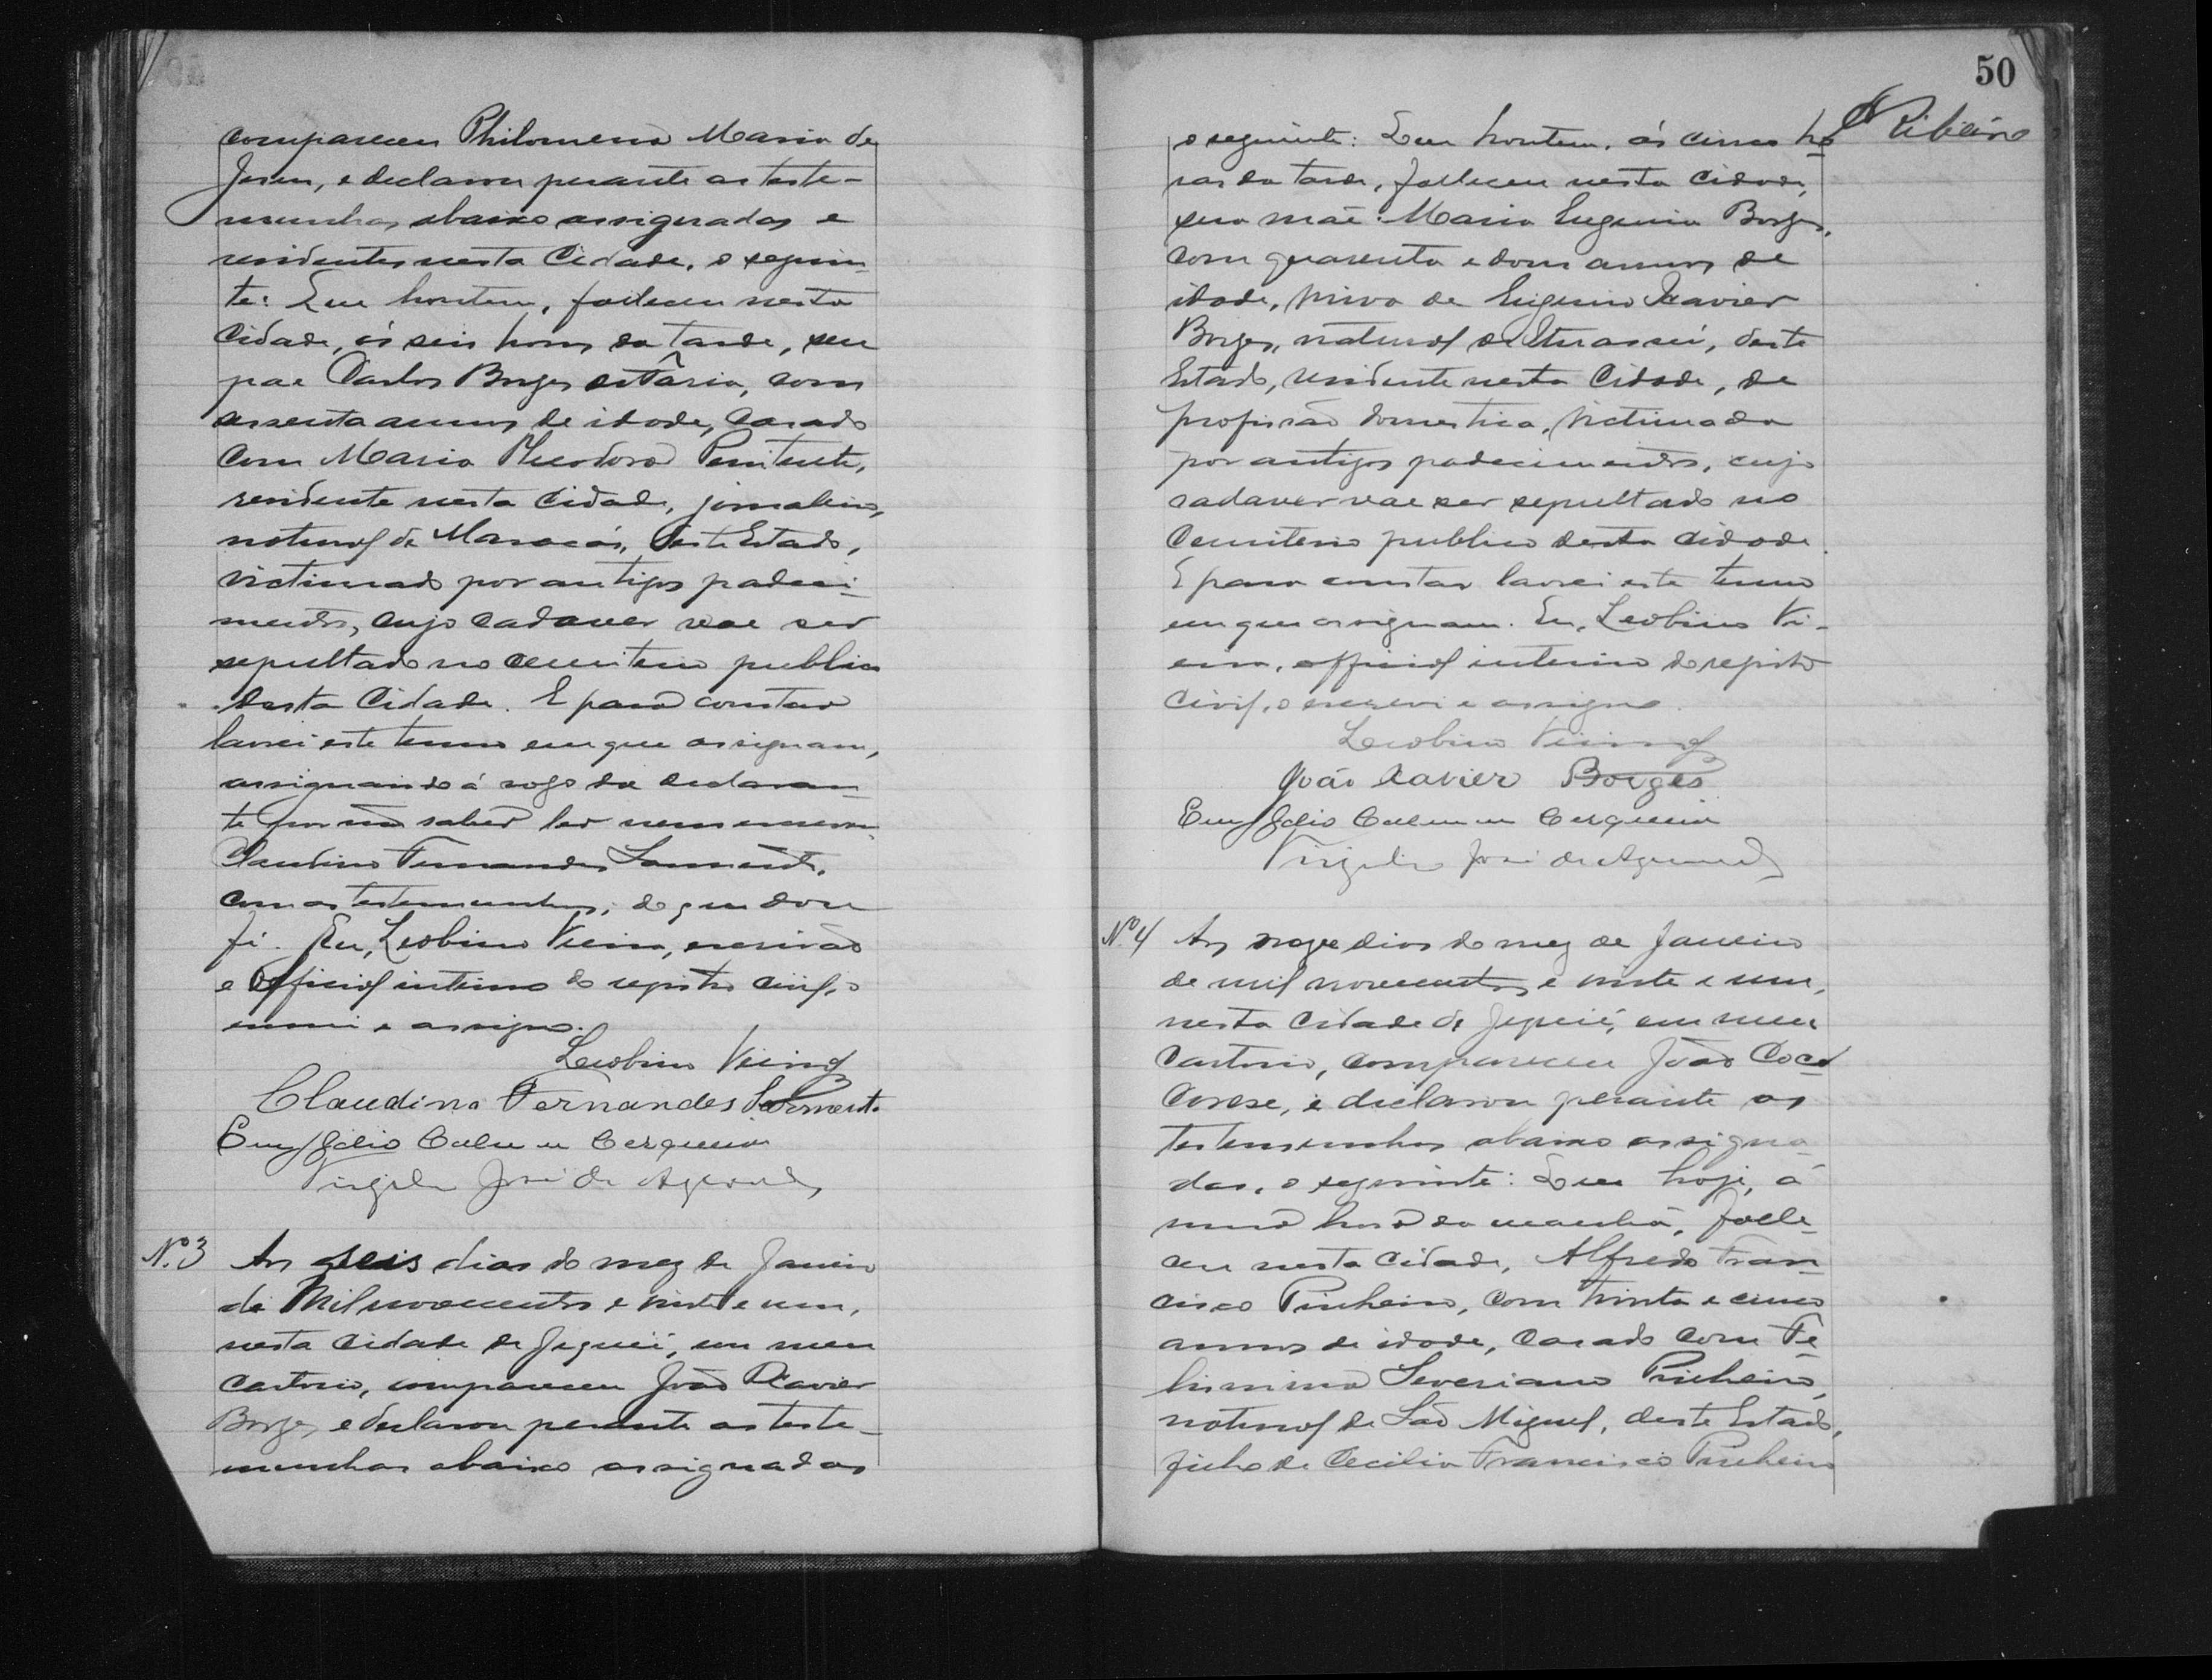 compareceu Philomena Maria de
Jesus, e declarou perante as teste-
munhas abaixo assignadas e
residentes nesta Cidade, o seguin-
te: Que hontem, falleceu nesta
Cidade, ás seis horas da tarde, seu
pae Carlos Borges, com
sessenta annos de idade, casado
com Maria Theodora Penitente,
residente nesta Cidade, jornaleiro,
natural de Maracás, deste Estado,
victimado por antigos padeci-
mentos, cujo cadaver vae ser
sepultado no cemiterio publico
desta Cidade. E para constar
lavrei este termo em que assignam,
assignando á rogo da declaran-
te por não saber ler nem escrever
Claudino Fernandes Sarmento,
com as testemunhas, do que dou
fé. Eu, Leobino Vieira, escrivão
e Official interino do registro civil, o
escrevi e assigno.
Leobino Vieira
Claudino Fernandes Sarmento
Emygdio Cerqueira
José de
Nº 3 Aos seis dias do mez de Janeiro
de Mil novecentos e vinte e um,
nesta Cidade de Jequié, em meu
Cartorio, compareceu João Xavier
Borges, e declarou perante as teste-
munhas abaixo assignadas
50
Ribeiro
o seguinte: Que hontem, ás cinco ho-
ras da tarde, falleceu nesta Cidade,
sua mãe Maria Eugenia Borges,
com quarenta e dous annos de
idade, viuva de Eugenio Xavier
Borges, natural de Iturassú, deste
Estado, residente nesta Cidade, de
profissão domestica, victimada
por antigos padecimentos, cujo
cadaver vae ser sepultado no
Cemiterio publico desta cidade.
E para constar lavrei este termo
em que assignam. Eu, Leobino Vi-
eira, official interino do registro
civil, o escrevi e assigno.
Leobino Vieira
João Xavier Borges
Emygdio Cerqueira
José de
Nº 4 Aos nove dias do mez de Janeiro
de mil novecentos e vinte e um,
nesta Cidade de Jequié, em meu
Cartorio, compareceu João
e declarou perante as
testemunhas abaixo assigna-
das, o seguinte: Que hoje, á
uma hora da manhã, falle-
ceu nesta Cidade, Alfredo Fran-
cisco Pinheiro, com trinta e cinco
annos de idade, casado com Fe-
lismina Severiana Pinheiro,
natural de São Miguel, deste Estado,
filho de Cecilia Francisco Pinheiro